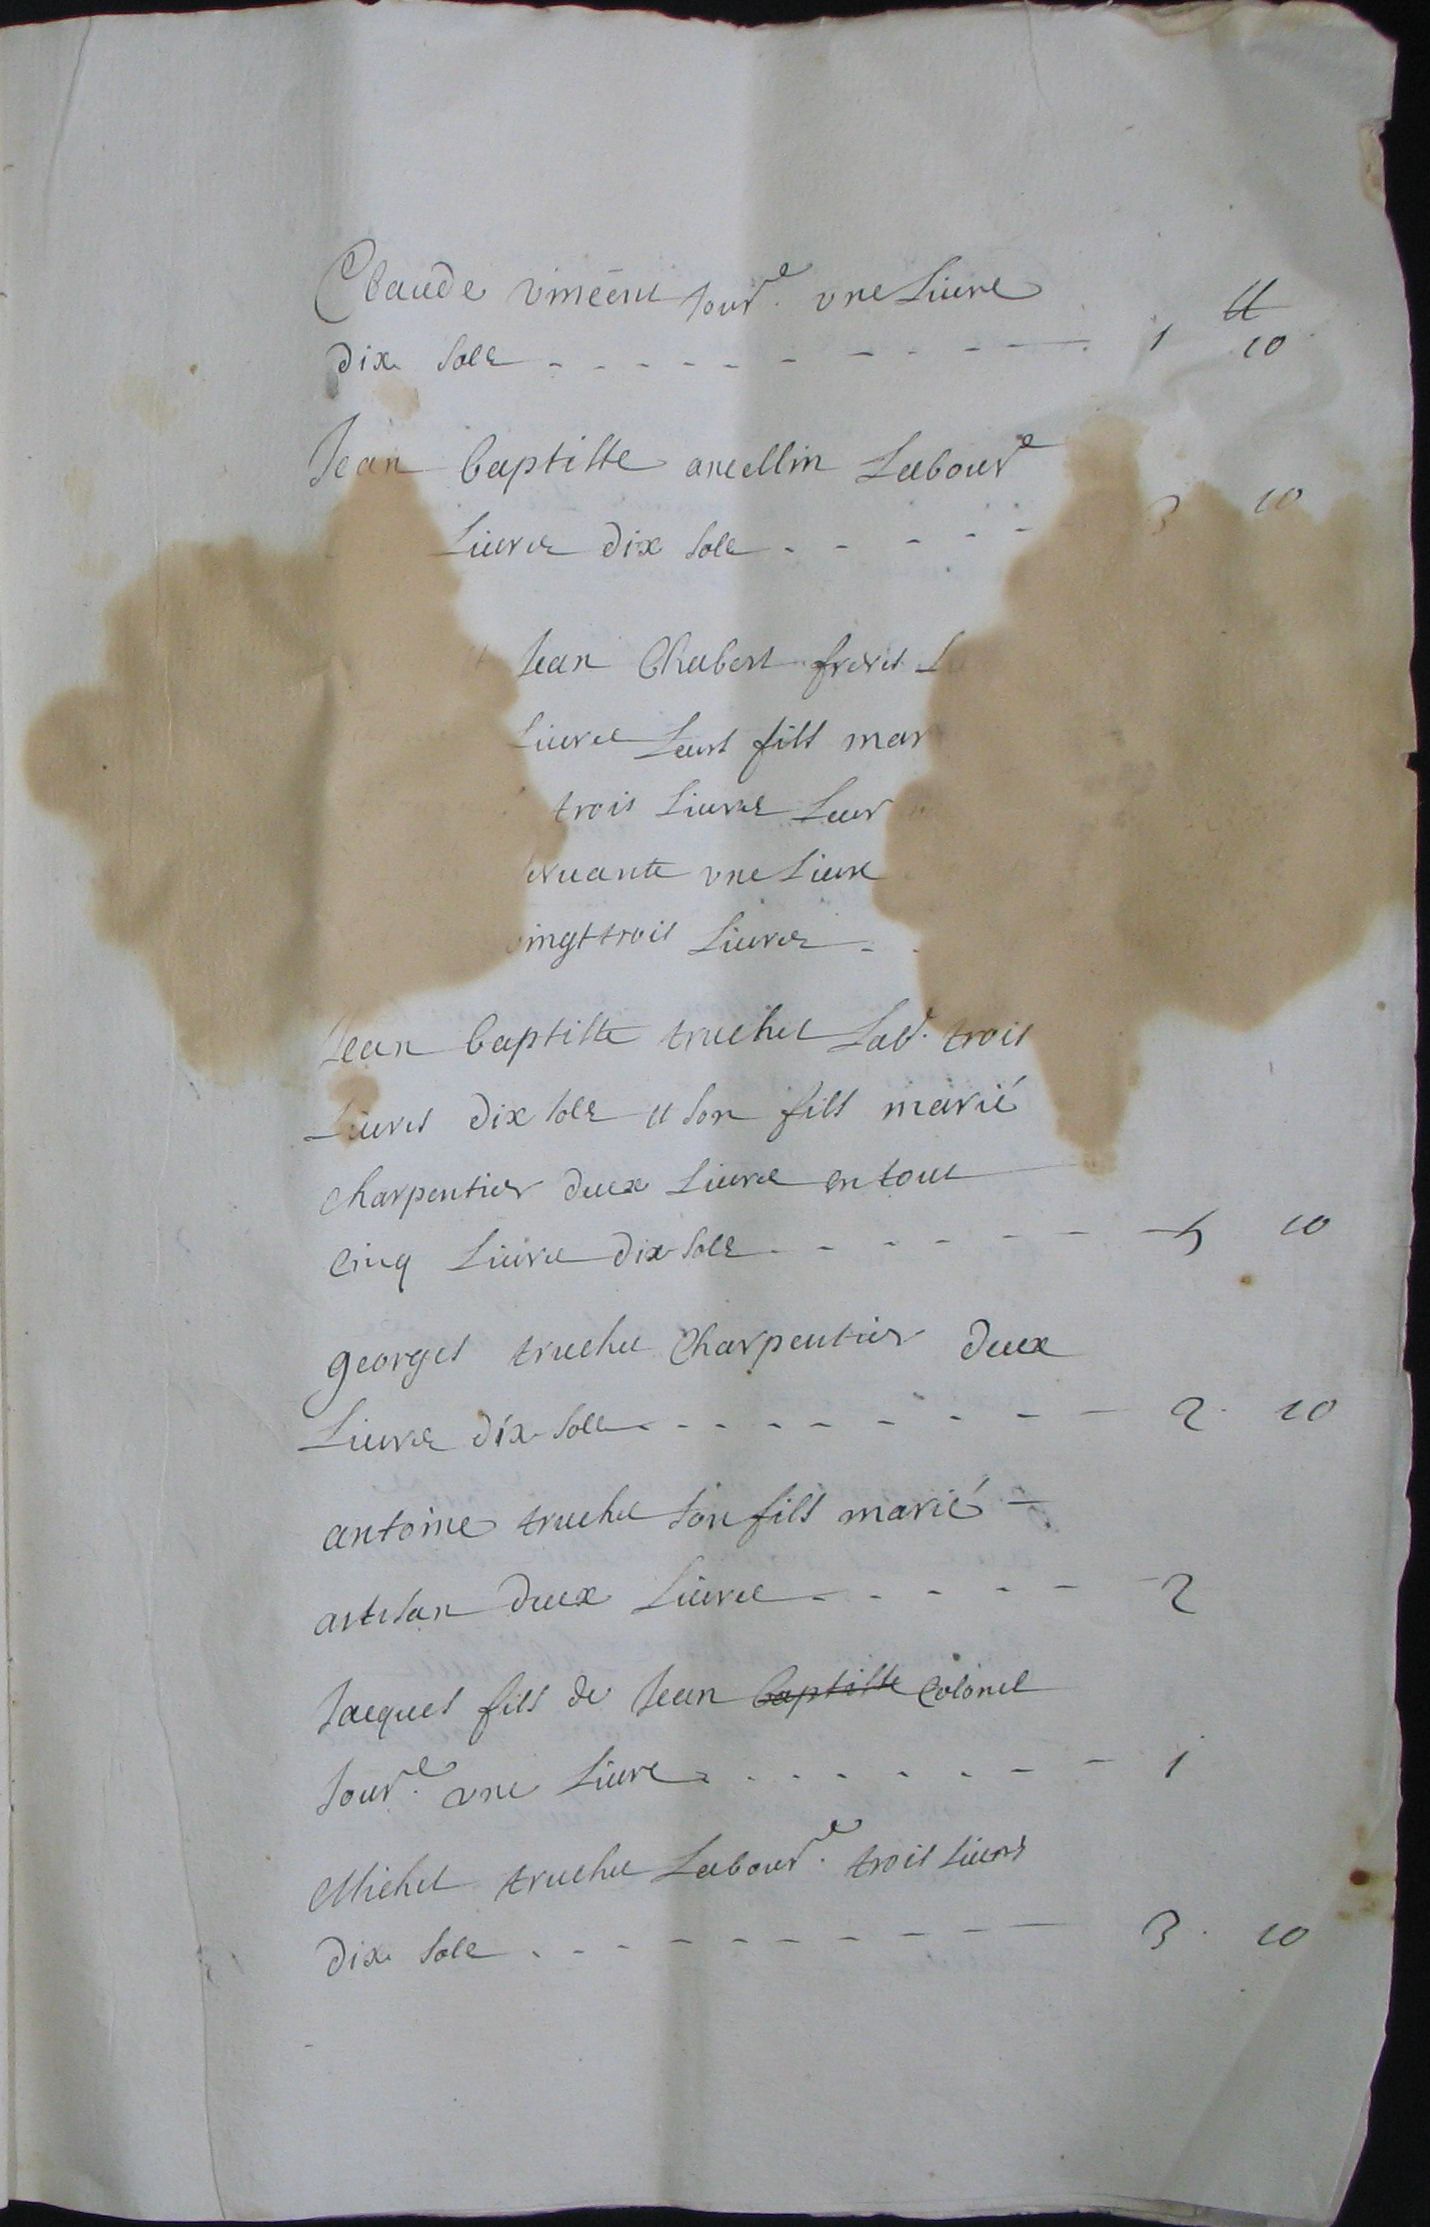 Claude vincent jour.e une Livre
₶
dix sols - - - - - - - - - - 1 10
Jean baptiste ancellin Labour.e
Livres dix sols - - - - - 3 10
Jean Chabert freres
Livres Leurs fils mar
trois Livres Leur
ervante une Livre
vingt trois Livres - -
Jean baptiste truchet Lab.r trois
Livres dix sols et son fils marié
charpentier deux Livres en tout
cinq Livres dix sols - - - - - - 5 10
georges truchet Charpentier deux
Livres dix sols - - - - - - - - 2 10
antoine truchet son fils marié -
artisan deux Livres - - - - - 2
Jacques fils de Jean baptiste Colonel
jour.e une Livre - - - - - - - 1
Michel truchet Labour.e trois Livres
dix sols - - - - - - - - - 3 10